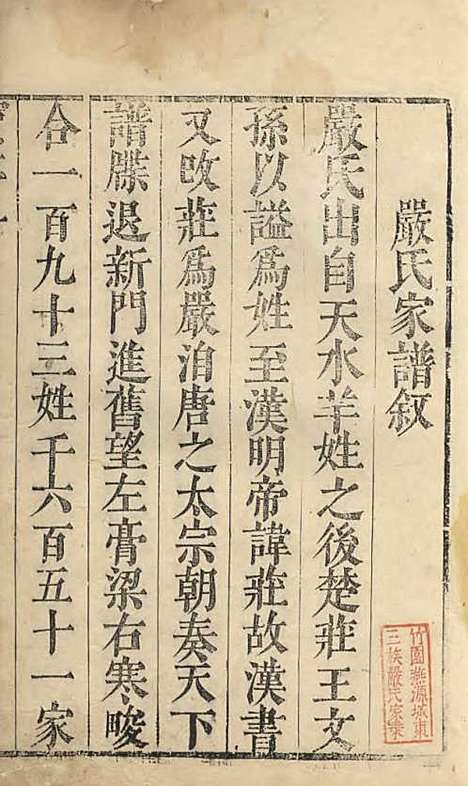 嚴氏家譜敘
嚴氏出自天水羋姓之後楚莊王文
孫以謚爲姓至漢明帝諱莊故漢書
又改莊爲嚴洎唐之太宗朝奏天下
譜牒退新門進舊望左膏梁右寒畯
合一百九十三姓千六百五十一家
竹園婺源城東
三族嚴氏家業